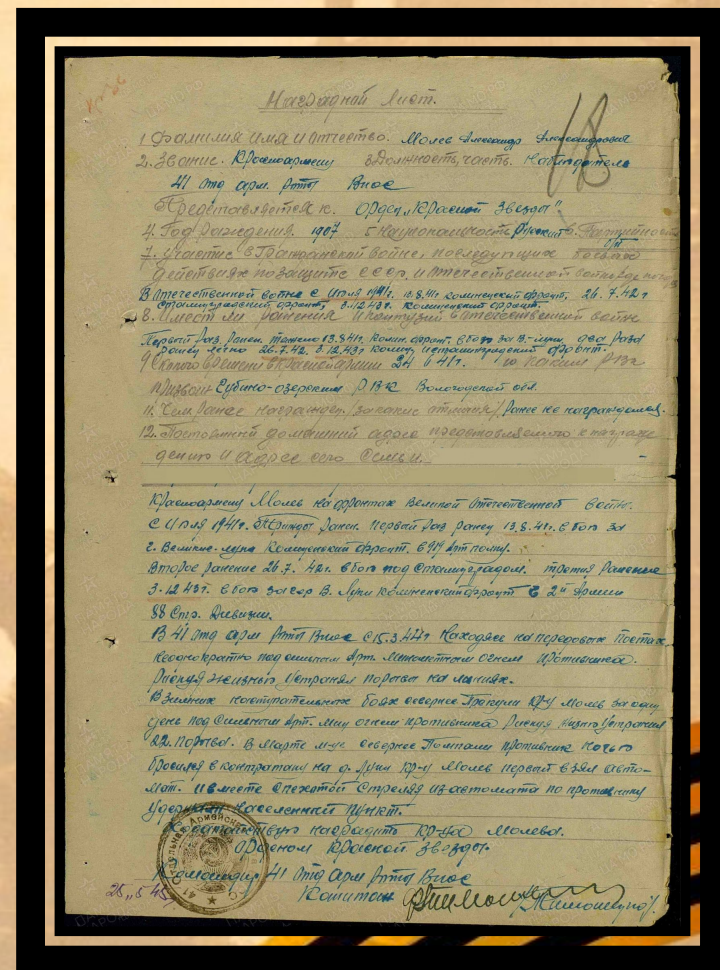 Наградной Лист.
18
1 Фамилия имя и отчество. Молев Александр Александрович
2. Звание. Красноармеец 3 Должность, часть. Наблюдатель
41 отд арм. роты Внос
Представляется к. Орден „Красной Звезды"
4. Год рождения. 1907 5 Национальность Русский 6. Партийность
б/п
7. Участие в Гражданской войне, последующих боевых
действиях по защите СССР, и отечественной войне
В отечественной войне с июля 1941г. фронт, 26.7.42г
фронт, 3.12.43г. фронт.
8. Имеет ли ранения и контузии в отечественной войне
Первый раз ранен тяжело 13.8.41г. фронт в бою за В-Луки, два раза
ранен легко 26.7.42. 3.12.43г фронт.
9 С какого времени в красной армии 24 6 41г. 10 каким РВК
призван РВК Вологодской обл.
11. Чем ранее награжден /за какие отличия/ Ранее не награждался.
12. Постоянный домашний адрес представляемого к награж
дению и адрес его семьи.
Красноармеец Молев на фронтах Великой Отечественной войны.
с июля 1941г. Трижды ранен. Первый раз ранен 13.8.41г. в бою за
г. Великие-Луки фронт. в Арт полку.
Второе ранение 26.7.42г. в бою под Сталинградом. третье ранение
3.12.43г. в бою за В. Луки фронт 2й Армии
88 Стр. Дивизии.
В 41 отд арм роты Внос с 15.3.44г Находясь на передовых постах
неоднократно под сильным Арт. минометным огнем противника.
Рискуя жизнью устранял порывы на линиях.
В зимних наступательных боях севернее кр-ц Молев за один
день под сильным Арт. мин огнем противника рискуя жизнью устранил
22. порыва. В марте м-це севернее противник ночью
бросился в контратаку на д. Луки кр-ц Молев первый взял авто-
мат. и вместе с пехотой стреляя из автомата по противнику
удержали населенный пункт.
Ходатайствую наградить кр-ца Молева.
орденом Красной Звезды.
Командир 41 отд арм роты Внос
Капитан
25.5.45г